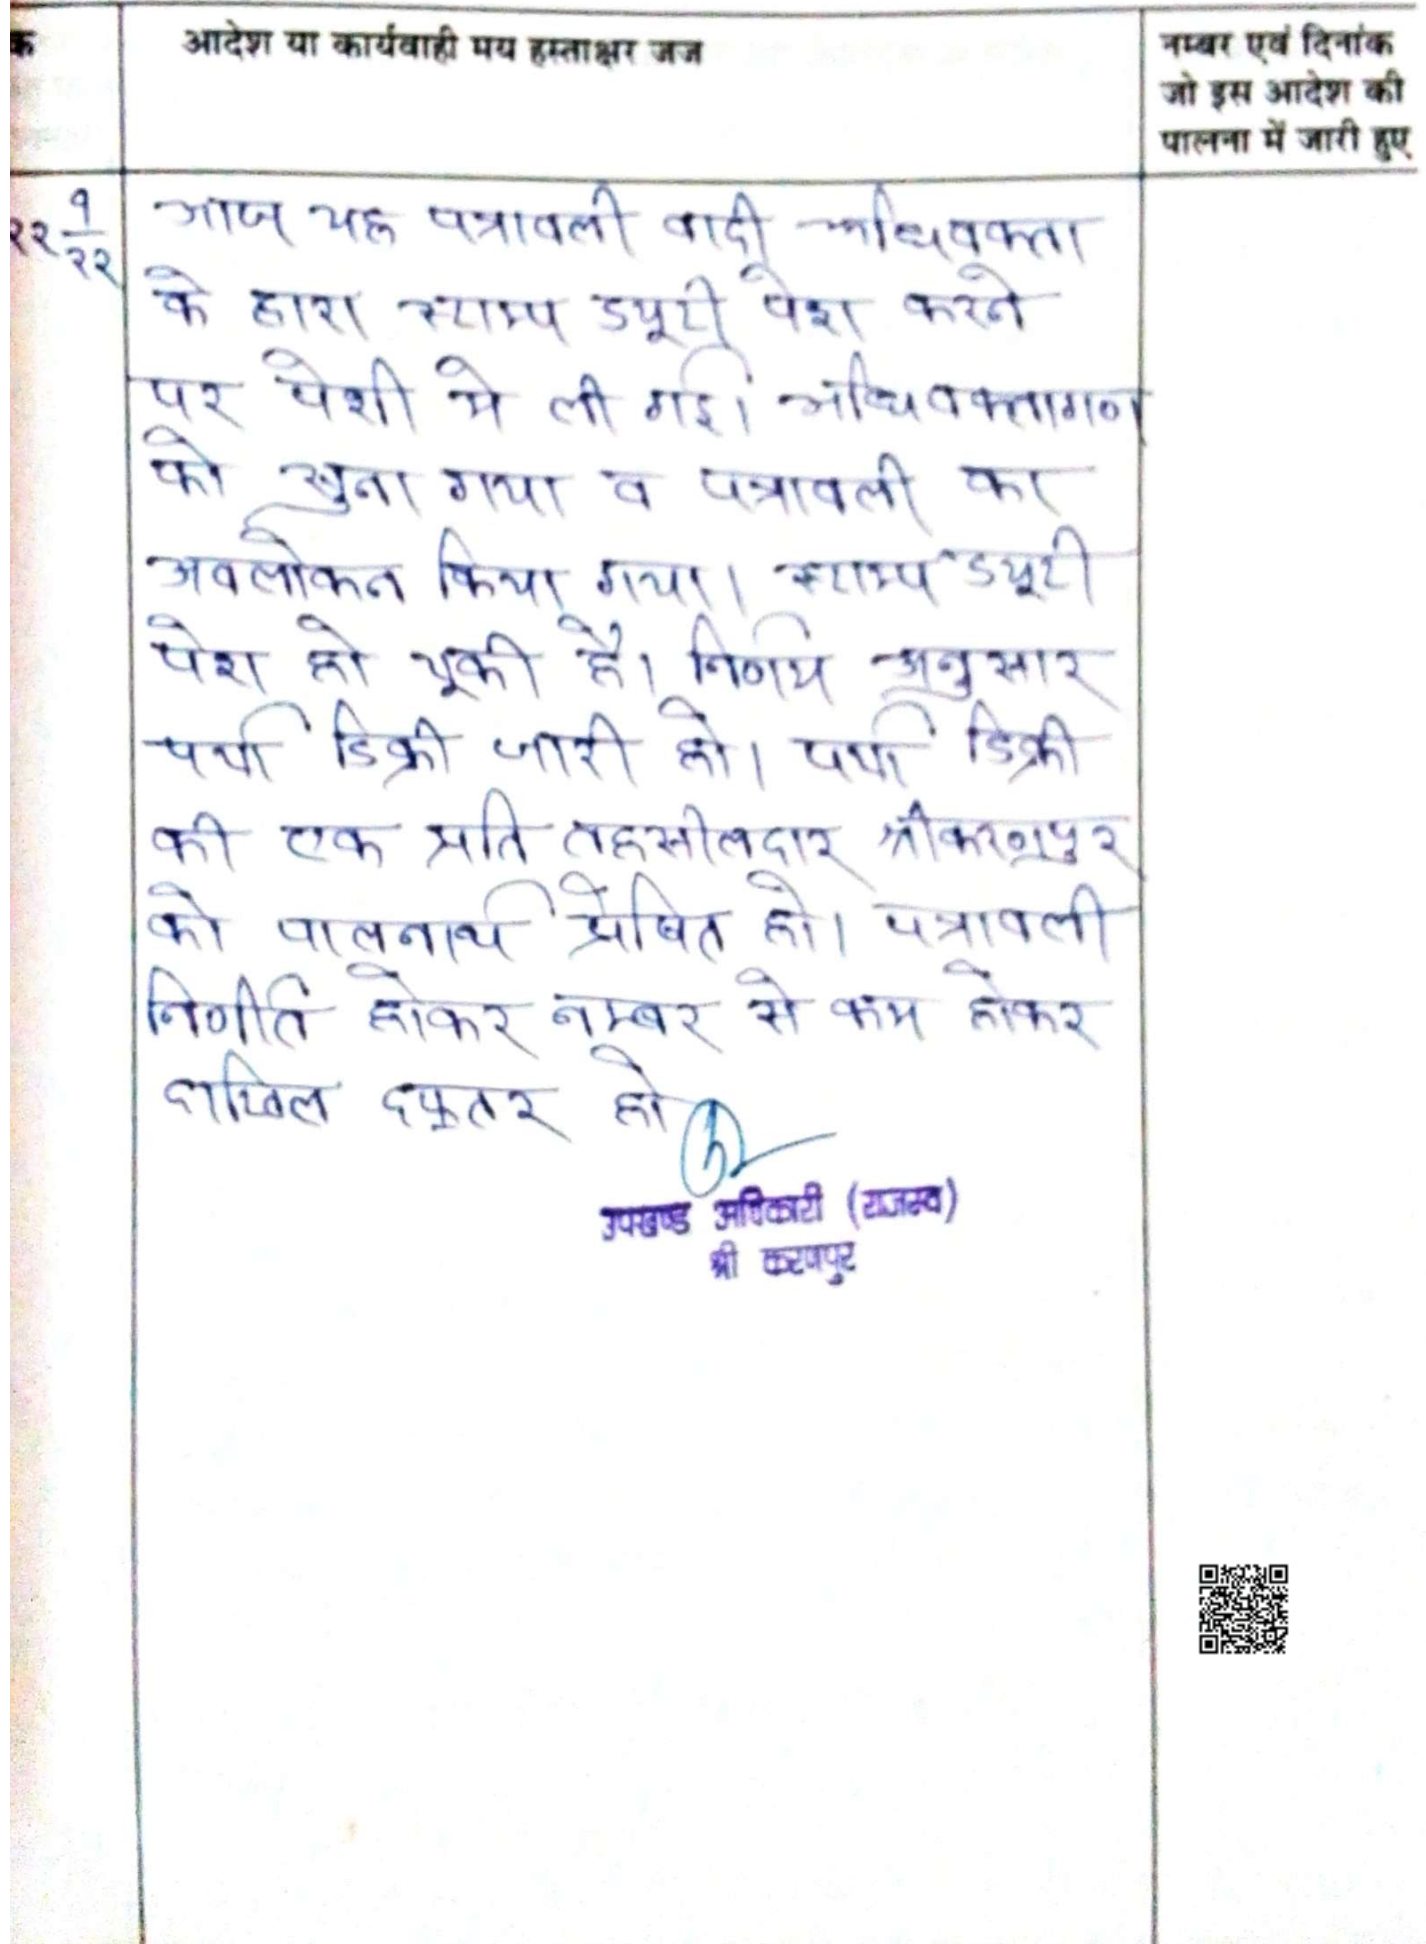 क
आदेश या कार्यवाही मय हस्ताक्षर जज
नम्बर एवं दिनांक
जो इस आदेश की
पालना में जारी हुए
२२ १/२२
आज यह पत्रावली वादी अधिवक्ता
के द्वारा स्टाम्प डयूटी पेश करने
पर पेशी मे ली गई। अधिवक्तागण
को सुना गया व पत्रावली का
अवलोकन किया गया। स्टाम्प डयूटी
पेश हो चूकी है। निर्णय अनुसार
पर्चा डिक्री जारी हो। पर्चा डिक्री
की एक प्रति तहसीलदार श्रीकरणपुर
को पालनार्थ प्रेषित हो। पत्रावली
निर्णीत होकर नम्बर से कम होकर
दाखिल दफ्तर हो
उपखण्ड अधिकारी (राजस्व)
श्री करणपुर